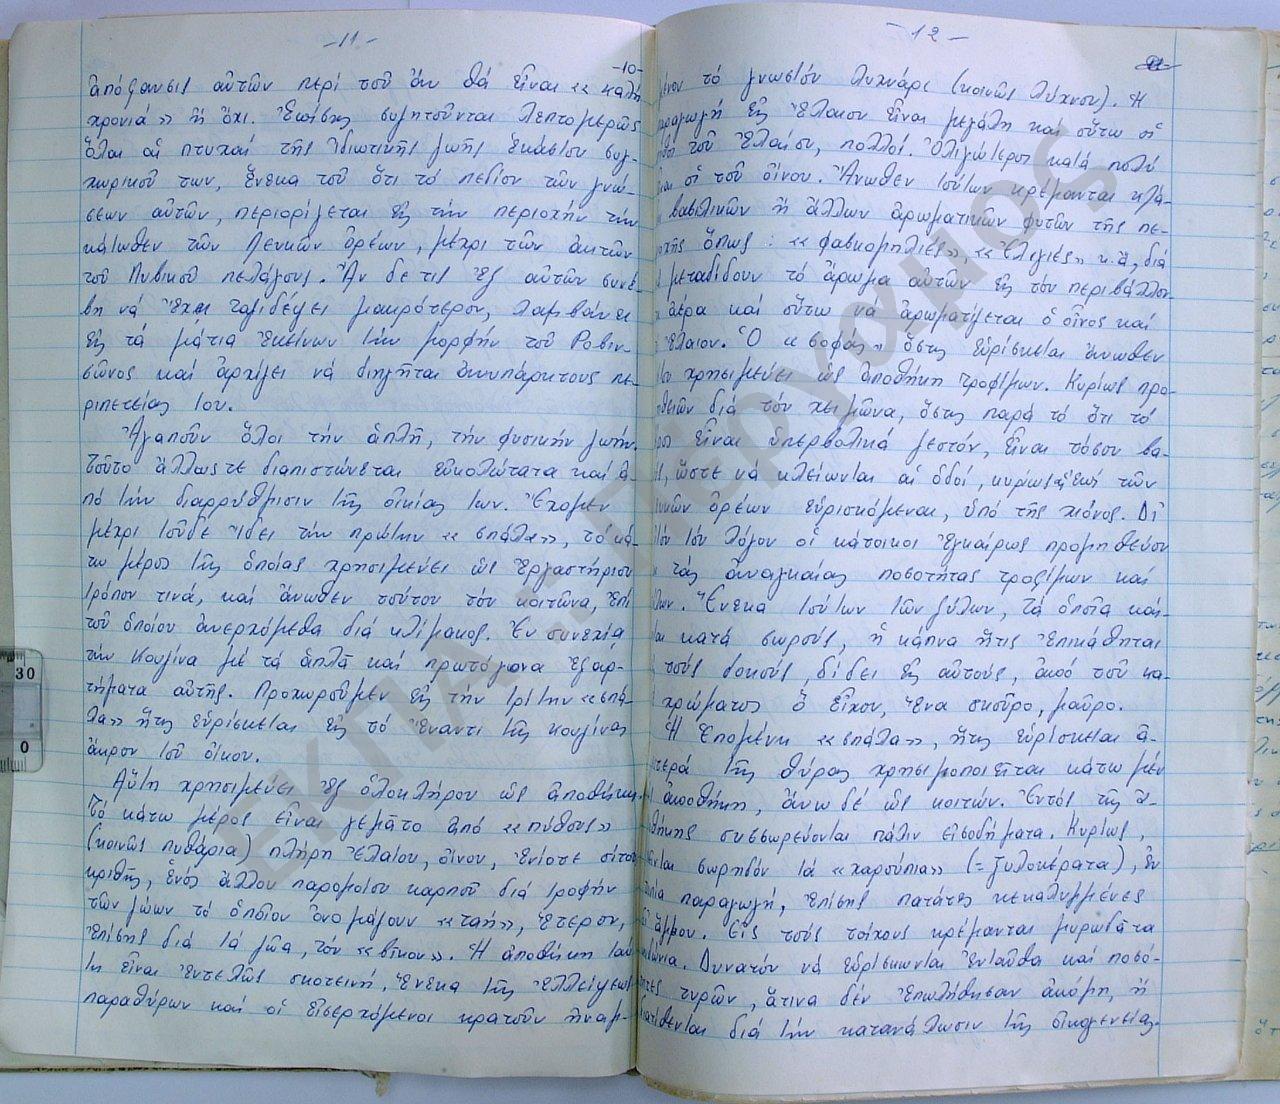 -11-
-10-
ἀπόφανσις αὐτῶν περὶ τοῦ ἄν θά εἶναι «καλή
χρονιά» ἤ ὄχι. Ἐπίσης συζητοῦνται λεπτομερῶς
ὅλαι αἱ πτυχαί τῆς ἰδιωτικῆς ζωῆς ἑκάστου συγ-
χωρικοῦ των, ἕνεκα τοῦ ὅτι τό πεδίον τῶν γνώ-
σεων αὐτῶν, περιορίζεται εἰς τήν περιοχήν τήν
κάτωθεν τῶν Λευκῶν ὀρέων, μέχρι τῶν ἀκτῶν
τοῦ Λυβικοῦ πελάγους. Ἄν δέ τις ἐξ αὐτῶν συνέ-
βη νά ἔχει ταξιδέψει μακρότερον, λαμβάνει
εἰς τά μάτια ἐκείνων τήν μορφήν τοῦ Ροβιν-
σῶνος καί ἀρχίζει νά διηγῆται ἀνυπάρκτους πε-
ριπετείας του.
Ἀγαποῦν ὅλοι τήν ἁπλῆ, τήν φυσικήν ζωήν.
Τοῦτο ἄλλωστε διαπιστώνεται εὐκολώτατα καί ἀ-
πό τήν διαρρύθμισιν τῆς οἰκίας των. Ἔχομεν
μέχρι τοῦδε ἴδει τήν πρώτην «σπάλα», τό κά-
τω μέρος τῆς ὁποίας χρησιμεύει ὡς ἐργαστήριον
τρόπον τινά, καί ἄνωθεν τούτου τόν κοιτῶνα, ἐπί
τοῦ ὁποίου ἀνερχόμεθα διά κλίμακος. Ἐν συνεχία
τήν κουζίνα μέ τά ἁπλᾶ καί πρωτόγονα ἐξαρ-
τήματα αὐτῆς. Προχωροῦμεν εἰς τήν τρίτην «σπά-
λα» ἥτις εὑρίσκεται εἰς τό ἔναντι τῆς κουζίνας
ἄκρον τοῦ οἴκου.
Αὕτη χρησιμεύει ἐξ ὁλοκλήρου ὡς ἀποθήκη.
Τό κάτω μέρος εἶναι γεμᾶτο ἀπό «πίθους»
(κοινῶς πυθάρια) πλήρη ἐλαίου, οἴνου, ἐνίοτε σίτου
κριθῆς, ἑνός ἄλλου παρομοίου καρποῦ διά τροφήν
τῶν ζώων τό ὁποῖον ὀνομάζουν «ταή», ἕτερον,
ἐπίσης διά τά ζῶα, τόν «βῖκον». Ἡ ἀποθήκη ταύ-
τη εἶναι ἐντελῶς σκοτεινή, ἕνεκα τῆς ἐλλείψεως
παραθύρων καί οἱ εἰσερχόμενοι κρατοῦν ἠναμ-
-12-
μένον τό γνωστόν λυχνάρι (κοινῶς λύχνον). Ἡ
παραγωγή εἰς ἔλαιον εἶναι μεγάλη καί οὕτω οἱ
τοῦ ἐλαίου, πολλοί. Ὀλιγώτεροι κατά πολύ
οἱ τοῦ οἴνου. Ἄνωθεν τούτων κρέμανται κλά-
βασιλικῶν ἤ ἄλλων ἀρωματικῶν φυτῶν τῆς πε-
ὅπως: «φασκομηλιές», «Ἑλιγιές» κ.ἄ, διά
μεταδίδουν τό ἄρωμα αὐτῶν εἰς τόν περιβάλλον
ἀέρα καί οὕτω νά ἀρωματίζεται ὁ οἶνος καί
ἔλαιον. Ὁ «σοφᾶς» ὅστις εὑρίσκεται ἄνωθεν
χρησιμεύει ὡς ἀποθήκη τροφίμων. Κυρίως προ-
διά τόν χειμῶνα, ὅστις παρά τό ὅτι τό
εἶναι ὑπερβολικά ζεστόν, εἶναι τόσον βα-
ὥστε νά κλείωνται αἱ ὁδοί, κυρίως αἱ ἐπί τῶν
ὀρέων εὑρισκόμεναι, ὑπό τῆς χιόνος. Δι'
τόν λόγον οἱ κάτοικοι ἐγκαίρως προμηθεύον
τάς ἀναγκαίας ποσότητας τροφίμων καί
Ἕνεκα τούτων τῶν ξύλων, τά ὁποῖα καί-
κατά σωρούς, ἡ κάπνα ἥτις ἐπικάθηται
τούς δοκούς, δίδει εἰς αὐτούς, ἀπό τοῦ κα-
χρώματος ὅ εἶχον, ἕνα σκοῦρο, μαῦρο.
Ἡ ἑπομένη «σπάλα», ἥτις εὑρίσκεται ἀ-
στερά τῆς θύρας χρησιμοποιεῖται κάτω μέν
ἀποθήκη, ἄνω δέ ὡς κοιτών. Ἐντός τῆς ἀ-
ποθήκης συσσωρεύονται πάλιν εἰσοδήματα. Κυρίως,
σωρηδόν τά «χαρούπια» (= ξυλοκέρατα), ἐν
παραγωγή, ἐπίσης πατάτες κεκαλυμμένες
ἄμμου. Εἰς τούς τοίχους κρέμανται μυρωδᾶτα
κυδώνια. Δυνατόν νά εὑρίσκωνται ἐνταῦθα καί ποσό-
τητες τυρῶν, ἅτινα δέν ἐπωλήθησαν ἀκόμη, ἤ
διά τήν κατανάλωσιν τῆς οἰκογενείας.
ΕΚΠΑ
Πέργαμος
30
0